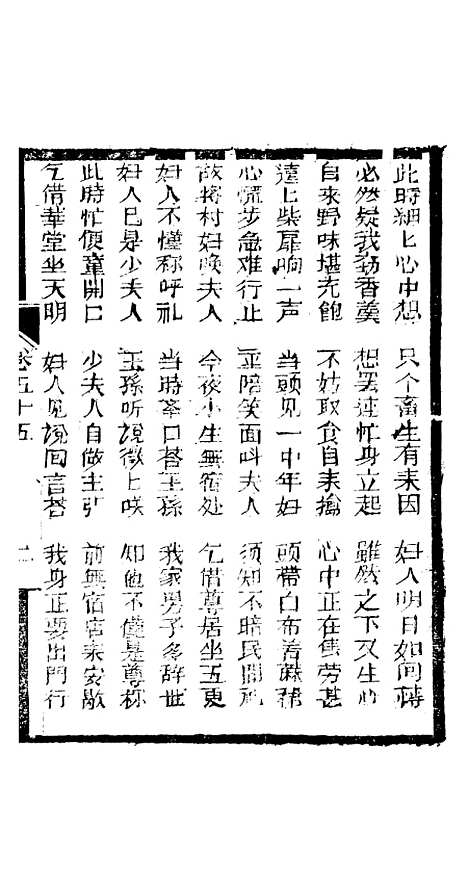 此時細上心中想 只个畜生有来因 妇人明日如问
必然疑我刼香羹 想罢連忙身立起 雖然之下又生心
自来野味堪充飽 不妨取食自来擒 心中正在焦劳甚
遠上柴扉响一声 当頭见一中年妇 頭带白布着麻裙
心慌步急难行止 平陪笑面叫夫人 須知不暗民間礼
故将村妇唤夫人 今夜小生無宿处 乞借尊居坐五更
妇人不懂称呼礼 当時荅口荅王孫 我家男子多辞世
妇人已是少夫人 王孫听說微上咲 知他不僅是尊称
此時忙便童開口 少夫人自做主引 前無宿店来安歇
乞借華堂坐天明 妇人见說回言荅 我身正要出門行
卷五十五 二